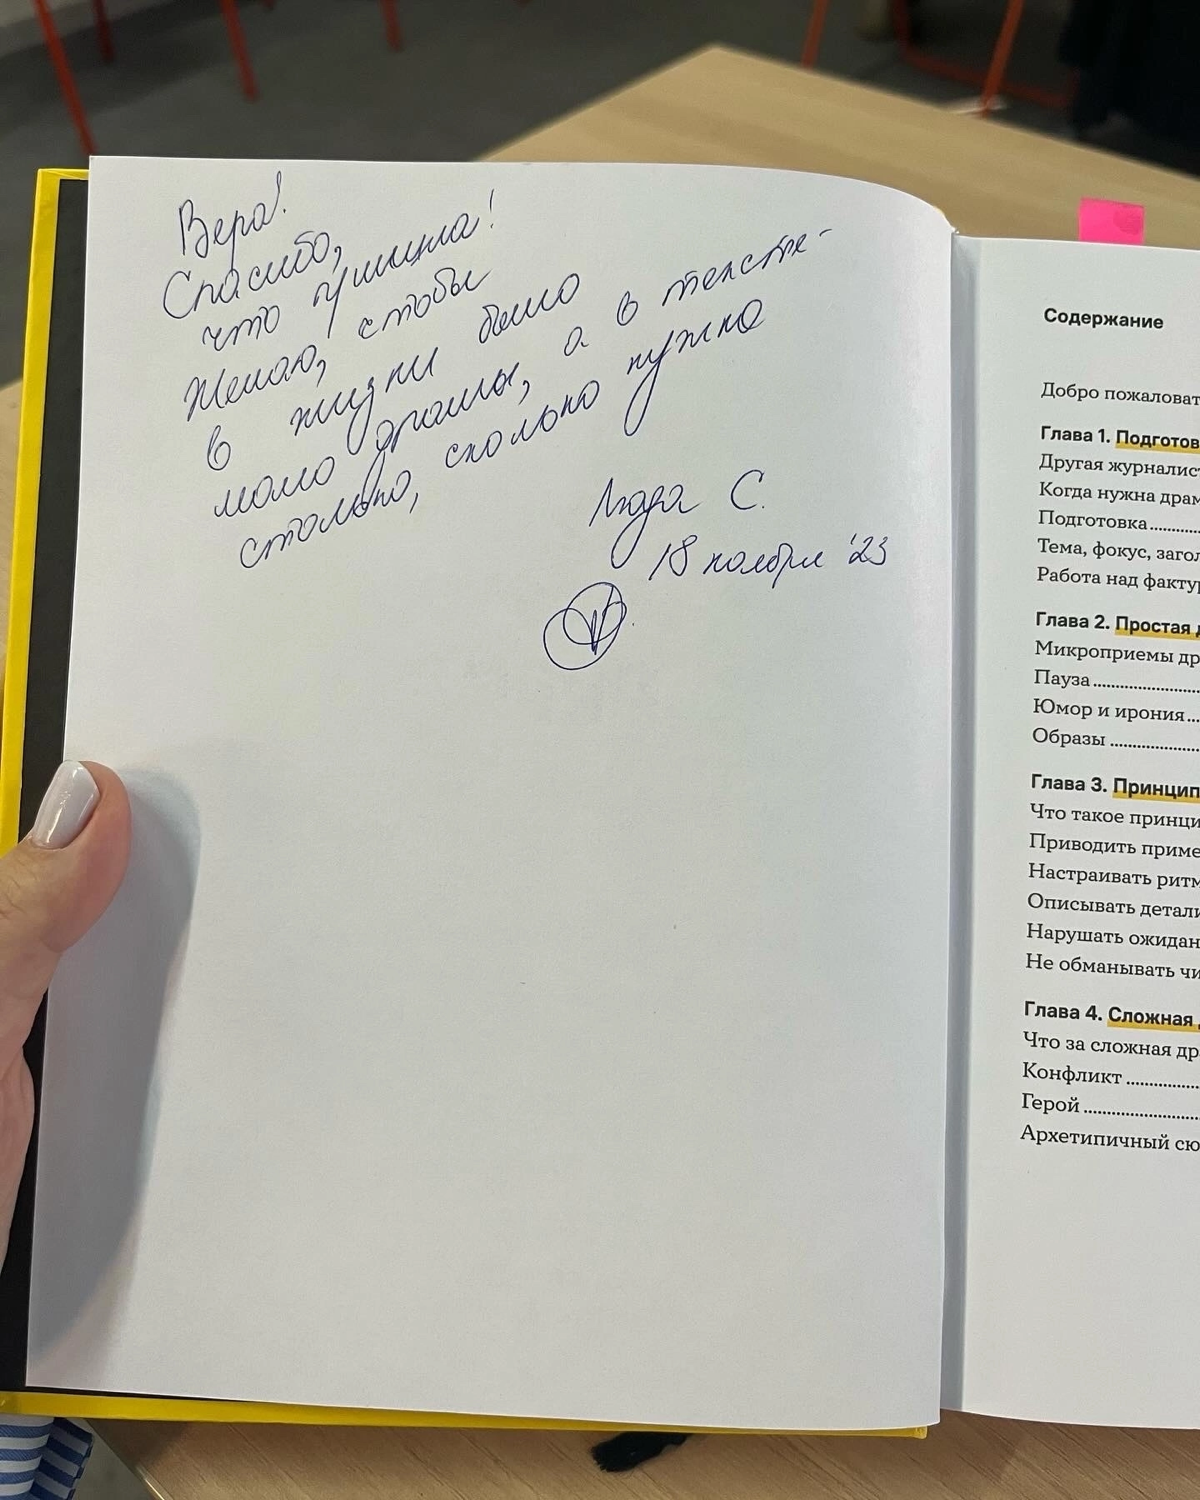 Вера!
Спасибо,
что пришла!
Желаю, чтобы
в жизни было
мало драмы, а в тексте -
столько, сколько нужно
Люда С.
18 ноября '23
Содержание
Добро пожаловат
Глава 1. Подготов
Другая журналист
Когда нужна драм
Подготовка
Тема, фокус, загол
Работа над фактур
Глава 2. Простая д
Микроприемы др
Пауза
Юмор и ирония
Образы
Глава 3. Принцип
Что такое принци
Приводить приме
Настраивать ритм
Описывать детали
Нарушать ожидан
Не обманывать чи
Глава 4. Сложная д
Что за сложная др
Конфликт
Герой
Архетипичный сю